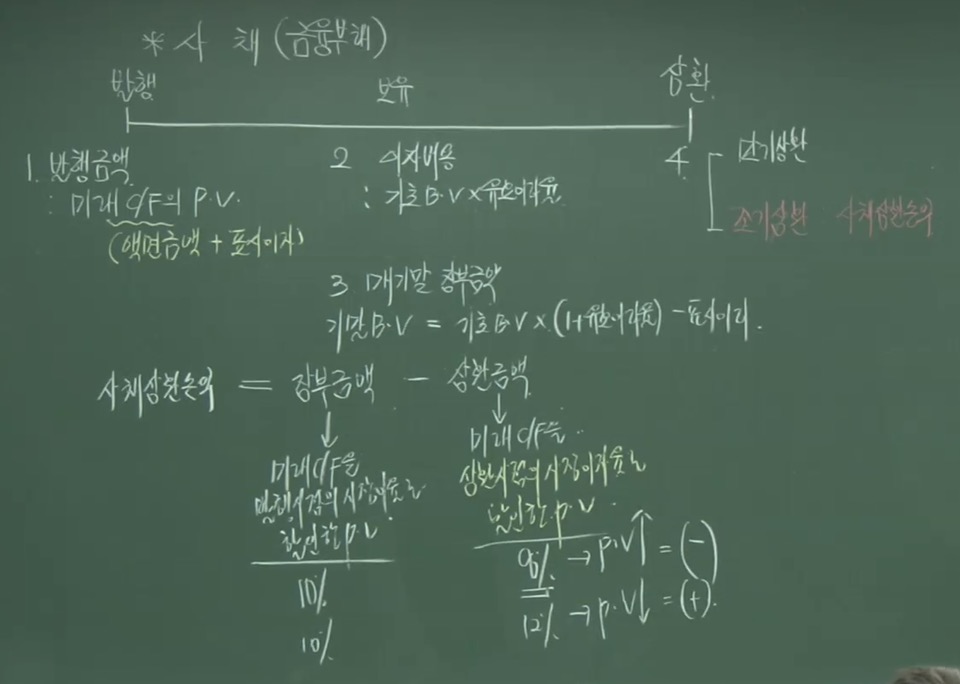 * 사 채 (금융부채)
발행 보유 상환
1. 발행금액
: 미래 C/F의 P.V.
(액면금액 + 표시이자)
2 이자비용
: 기초 B.V × 유효이자율
4 만기상환
조기상환 사채상환손익
3 매기말 장부금액
기말 B.V = 기초 B.V × (1+유효이자율) - 표시이자.
사채상환손익 = 장부금액 - 상환금액
↓
미래 C/F을
발행시점의 시장이자율로
할인한 P.V
10%
10%
↓
미래 C/F을
상환시점의 시장이자율로
할인한 P.V
8% → P.V↑ = (-)
12% → P.V↓ = (+).